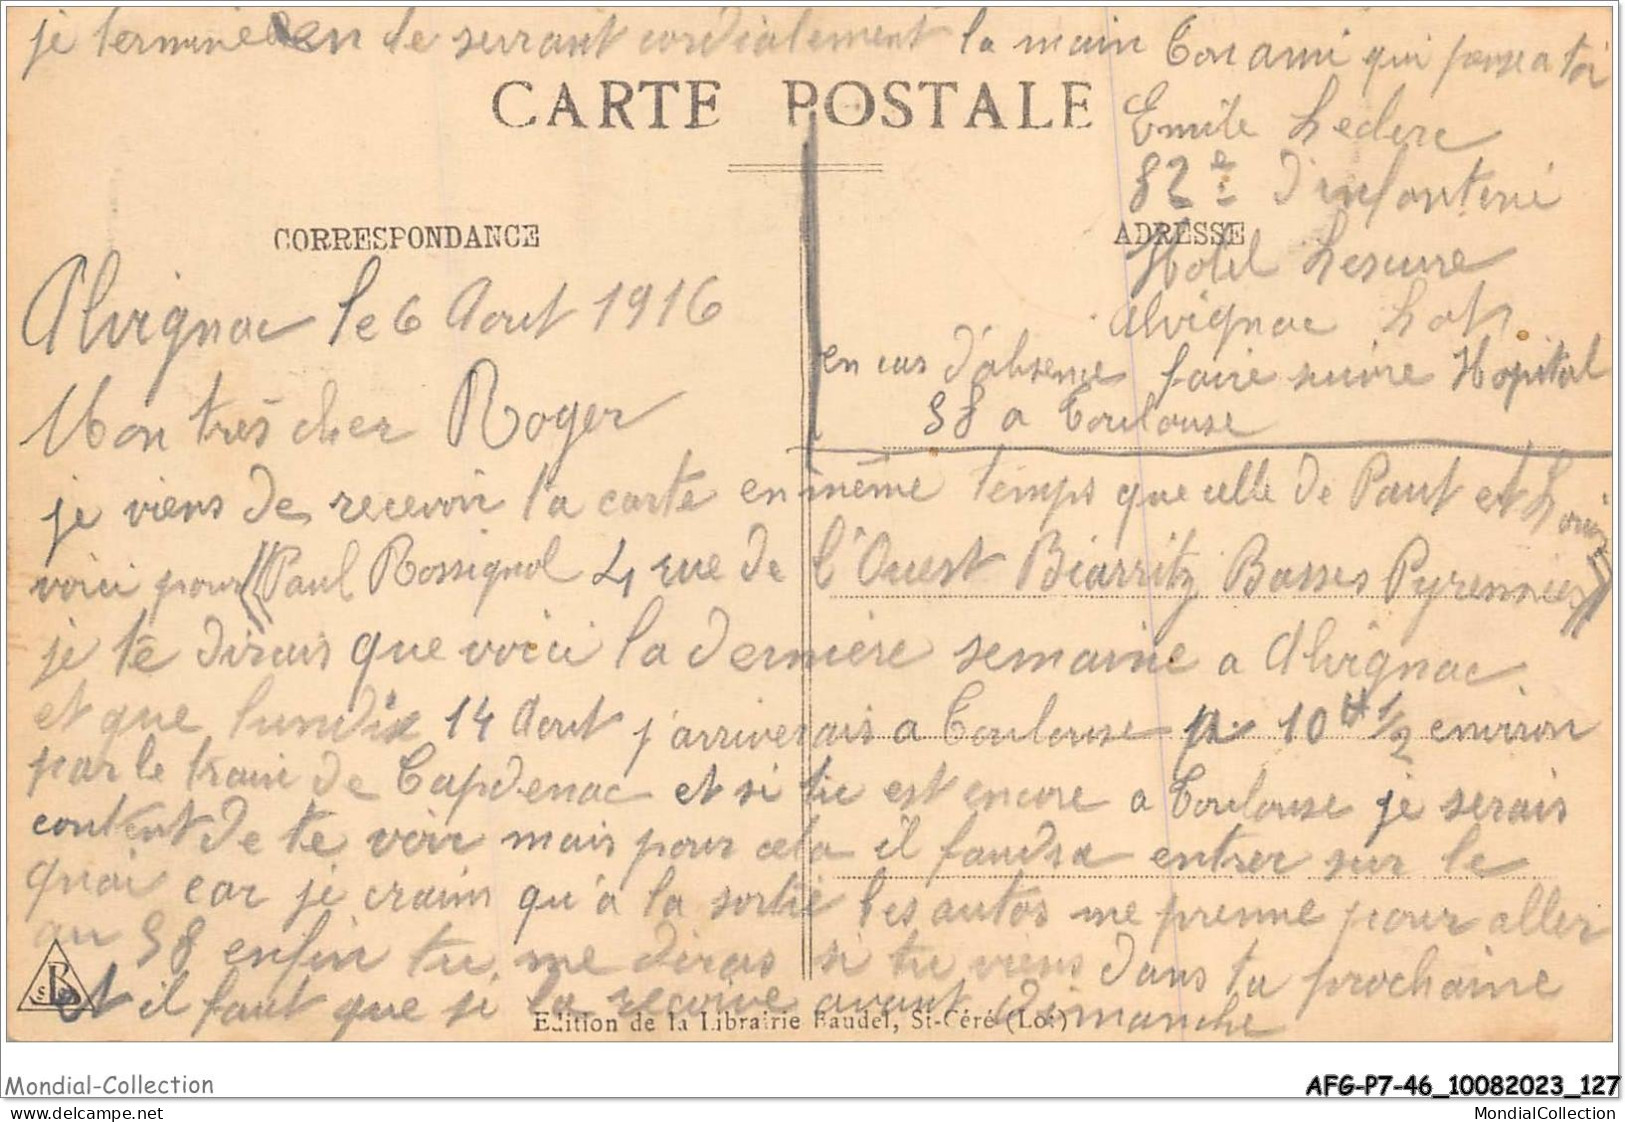 je termine en te serrant cordialement la main Ton ami qui pense a toi
CARTE POSTALE
Emile Leclerc
82e d'infanterie
CORRESPONDANCE
ADRESSE
Hotel Lescure
Alvignac Lot
Alvignac le 6 Aout 1916
en cas d'absence faire suivre Hopital
38 a Toulouse
Mon très cher Roger
je viens de recevoir ta carte en même temps que celle de Paul et Louis
voici pour "Paul Rossignol 4 rue de l'Ouest Biarritz Basses Pyrennées"
je te dirais que voici la dernière semaine a Alvignac
et que lundi 14 Aout j'arriverais a Toulouse a 10H 1/2 environ
par le train de Capdenac et si tu est encore a Toulouse je serais
content de te voir mais pour cela il faudra entrer sur le
quai car je crains qu'à la sortie les autos me prenne pour aller
au 38 enfin tu me diras si tu viens dans ta prochaine
et il faut que je la reçoive avant dimanche
Edition de la Librairie Baudel, St-Céré (Lot)
Mondial-Collection
AFG-P7-46_10082023_127
www.delcampe.net
MondialCollection